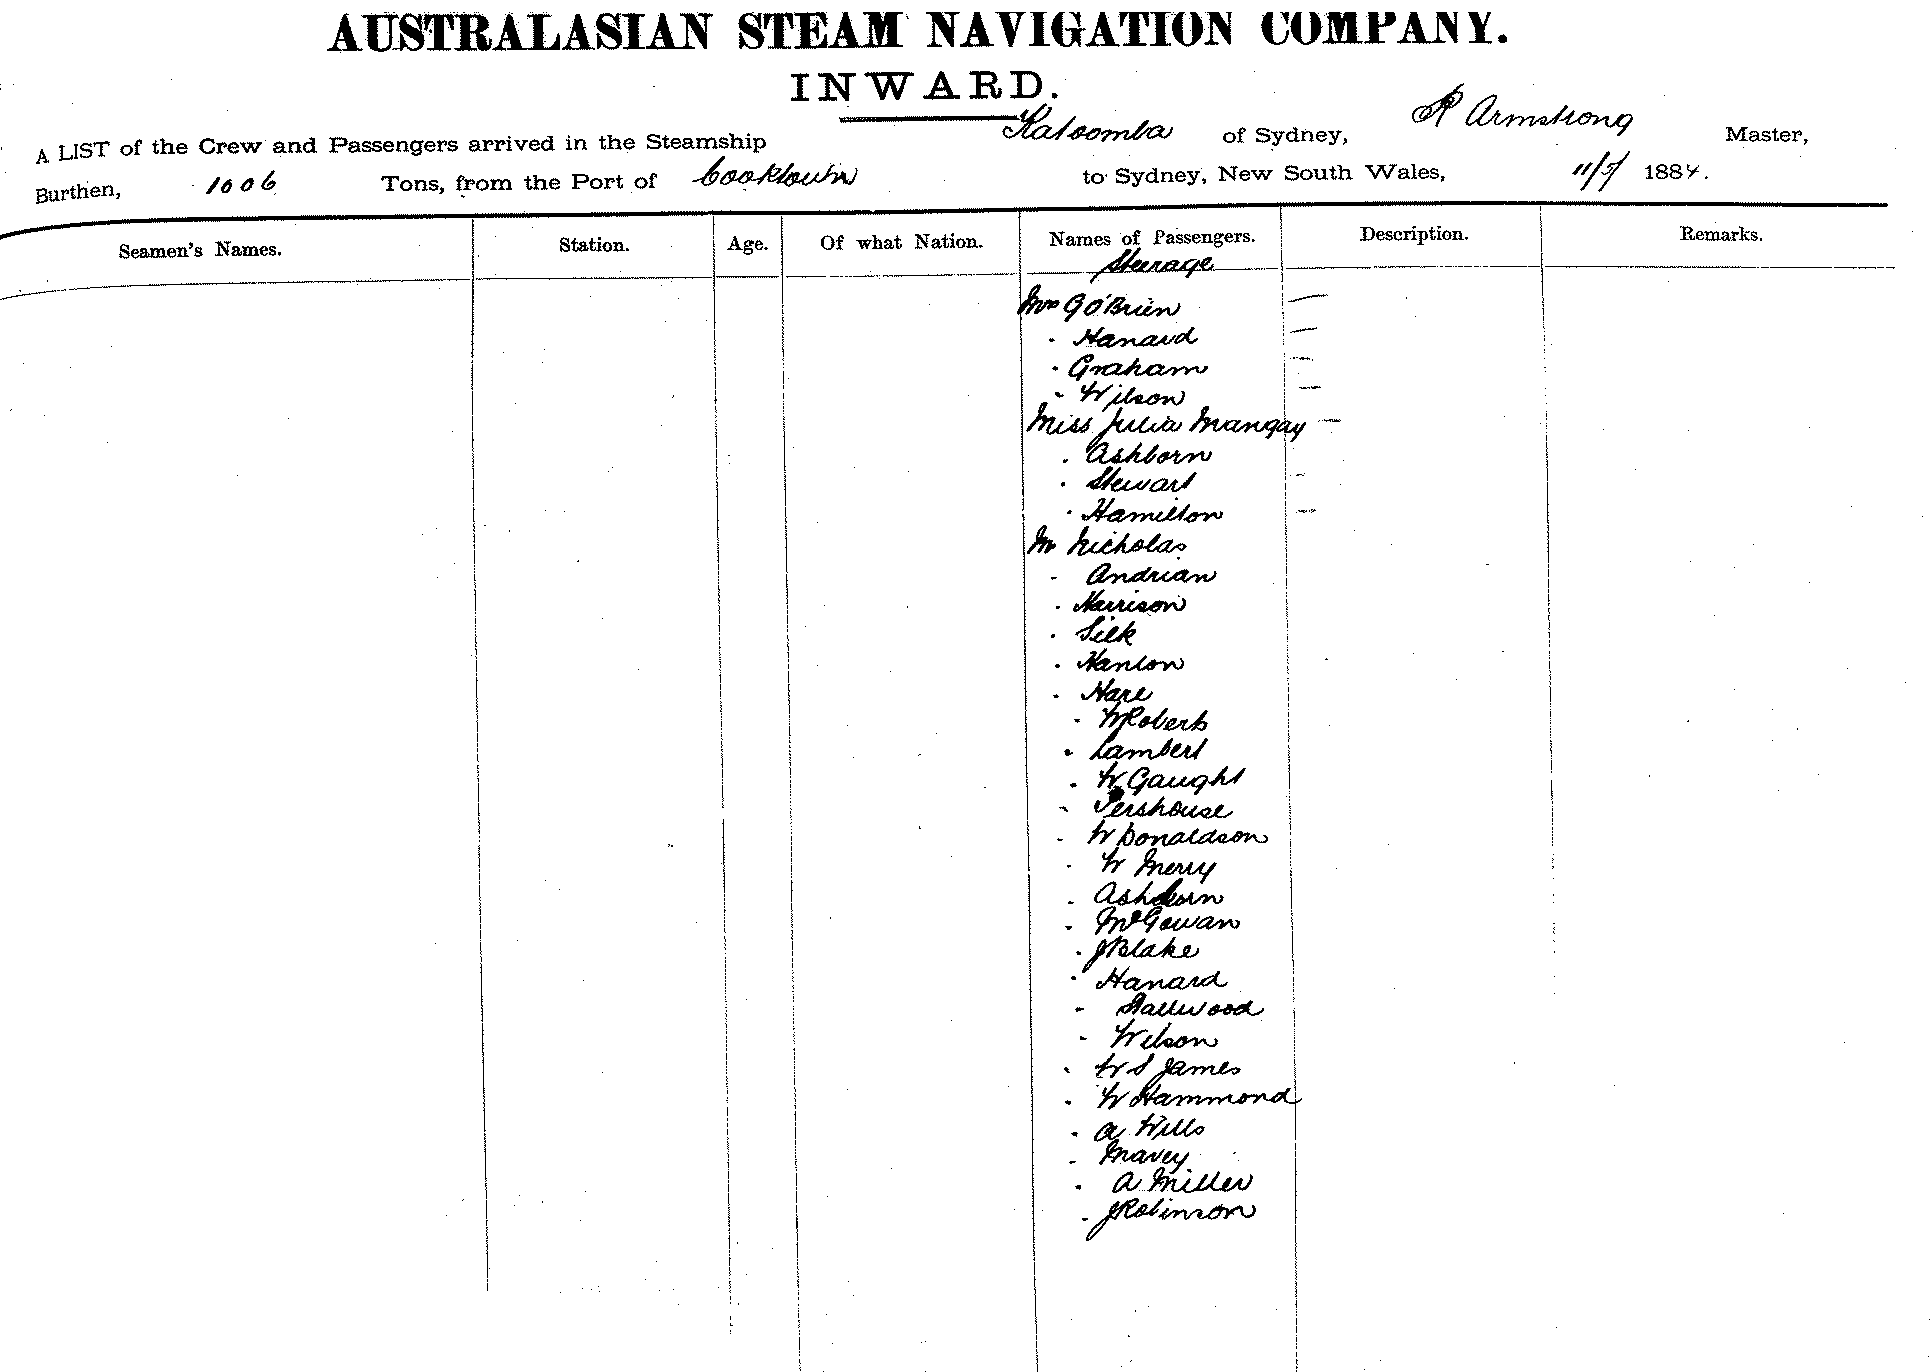 AUSTRALASIAN STEAM NAVIGATION COMPANY.
INWARD.
A LIST of the Crew and Passengers arrived in the Steamship Katoomba of Sydney, R Armstrong Master,
Burthen, 1006 Tons, from the Port of Cooktown to Sydney, New South Wales, 11/5/ 1884.
Seamen's Names. Station. Age. Of what Nation. Names of Passengers. Description. Remarks.
Steerage
Mrs G O'Brien —
" Hanard —
" Graham —
" Wilson —
Miss Julia Mangay —
" Ashborn
" Stewart -
" Hamilton —
Mr Nicholas
" Andrian
" Harrison
" Silk
" Hanlon
" Hare
" W Roberts
" Lambert
" W Gaught
" Pershouse
" W Donaldson
" W Merry
" Ashborn
" McGowan
" J Blake
" Hanard
" Stallwood
" Wilson
" W S James
" W Hammond
" A Wills
" Mavey
" A Miller
" J Robinson